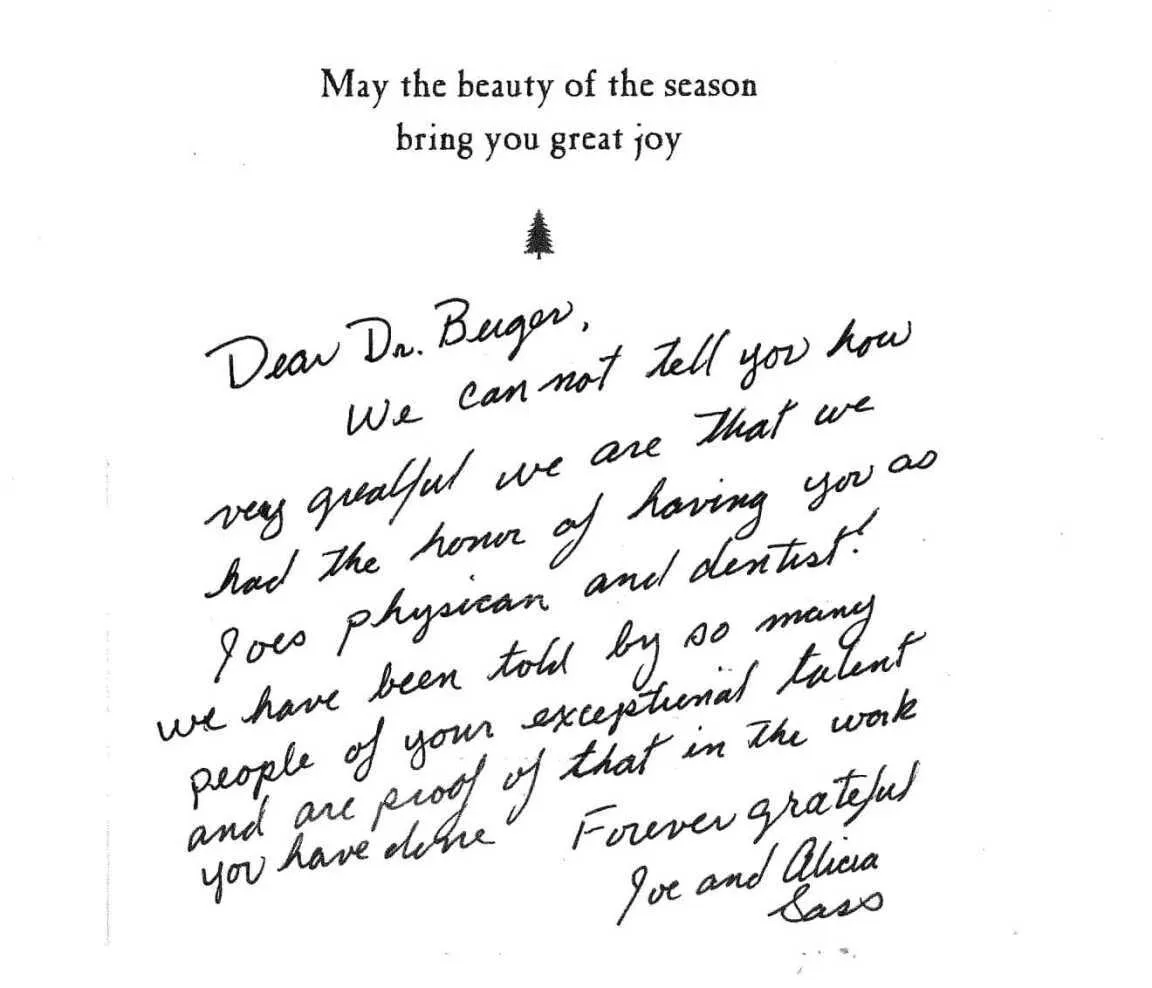 May the beauty of the season
bring you great joy
Dear Dr. Beuger,
We can not tell you how
very greatful we are that we
had the honor of having you as
Joes physican and dentist!
we have been told by so many
people of your exceptional talent
and are proof of that in the work
you have done Forever grateful
Joe and Alicia
Sass